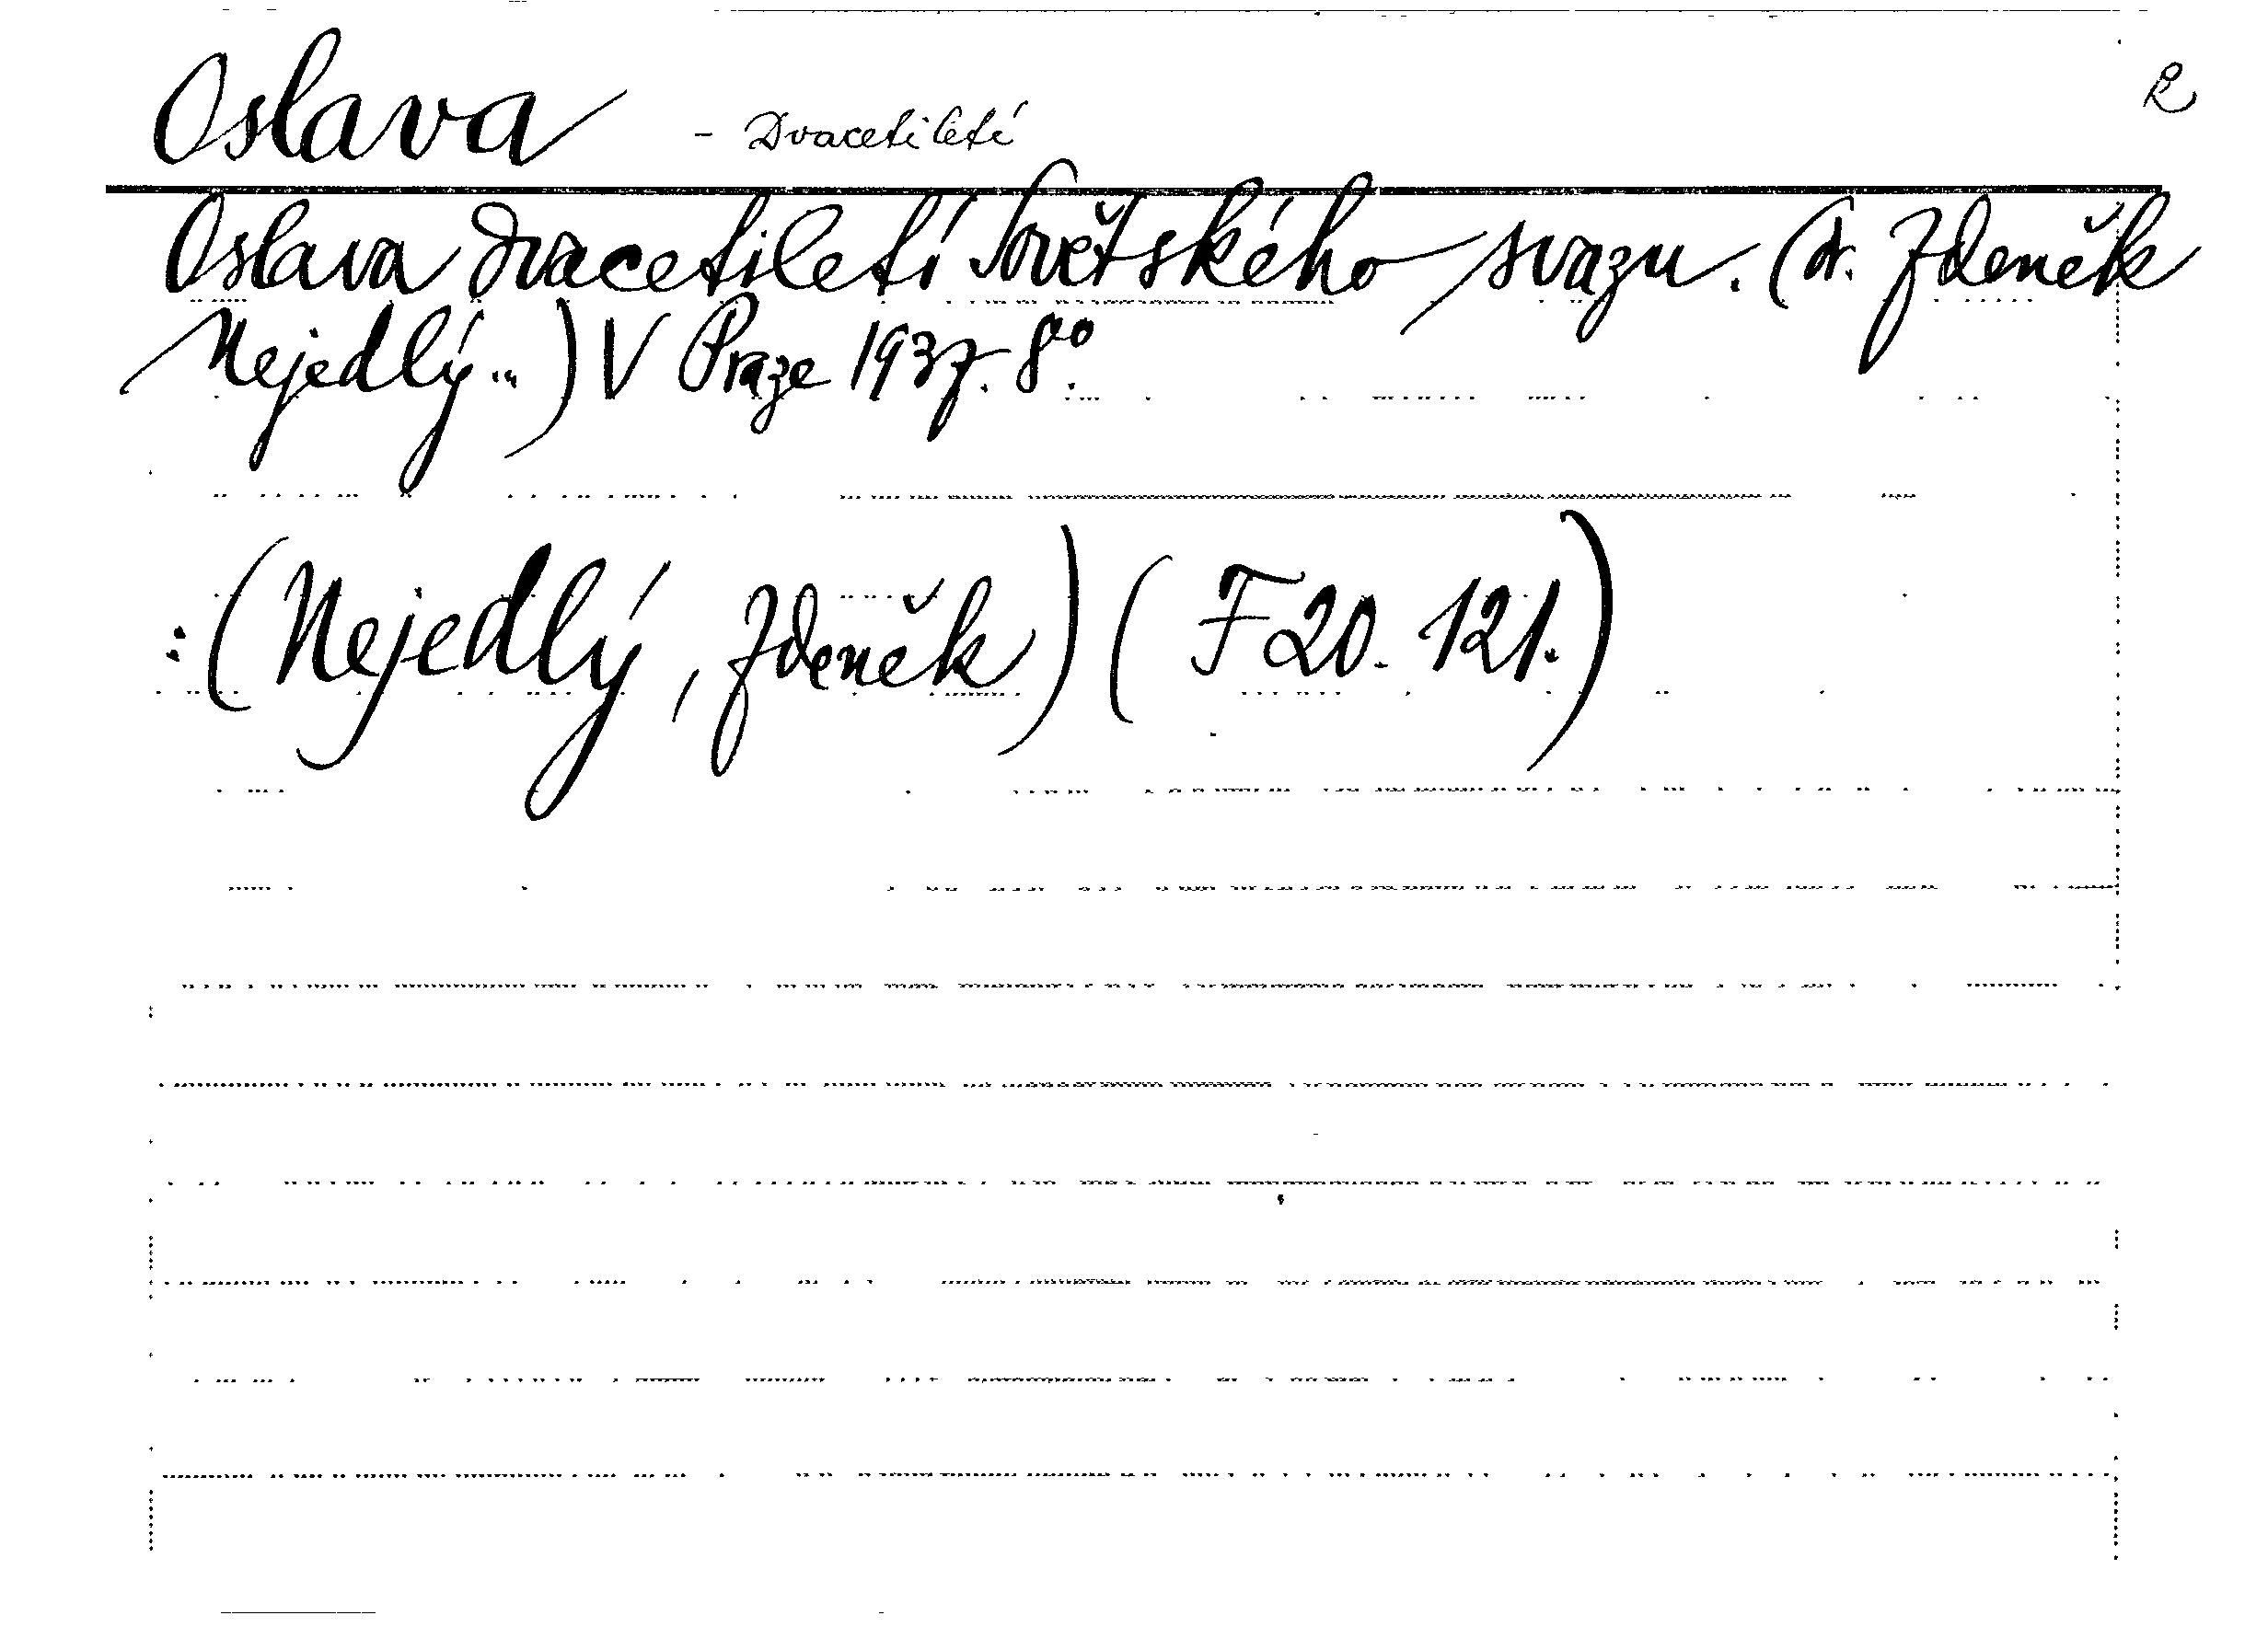 Oslava - Dvacetiletí R
Oslava dvacetiletí Sovětského svazu. (Dr. Zdeněk
Nejedlý...) V Praze 1937. 8°.
: (Nejedlý, Zdeněk) (F 20. 121.)